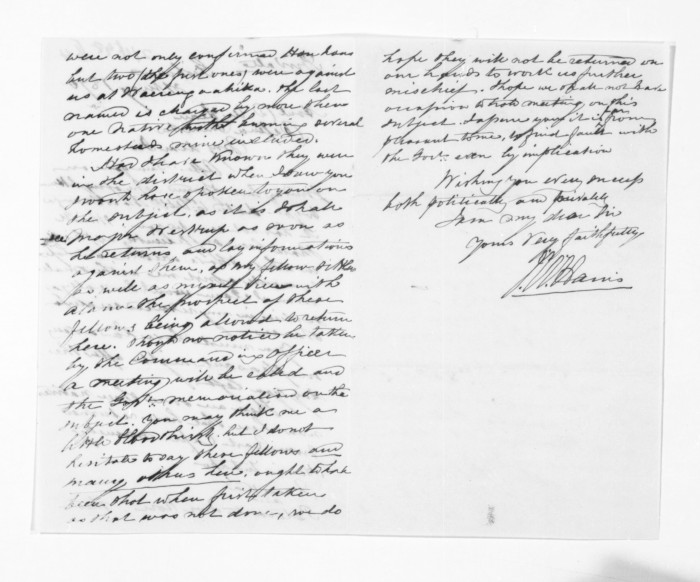 were not only confirmed Hauhaus
but two (the first ones) were against
us at Waerenga a hika. The last
named is charged by more than
one native with burning several
homesteads mine included.
Had I have known they were
in the district when I saw you
I would have spoken to you on
the subject, as it is I shall
see Major Westrup as soon as
he returns and lay informations
against them, as my fellow settlers
as well as myself view with
alarm the prospect of these
fellows being allowed to return
here. Should no notice be taken
by the Commanding Officer
a meeting will be called and
the Govt. memorialized on the
subject. You may think me a
little bloodthirsty but I do not
hesitate to say these fellows and
many others here, ought to have
been shot when first taken
as that was not done, we do
hope they will not be returned on
our hands to work us further
mischief. I hope we shall not have
occasion to hold meeting on this
subject. I assure you it is far from
pleasant to me, to find fault with
the Govt. even by implication
Wishing you every success
both politically and privately
I am my dear Sir
Yours Very faithfully
J W Harris